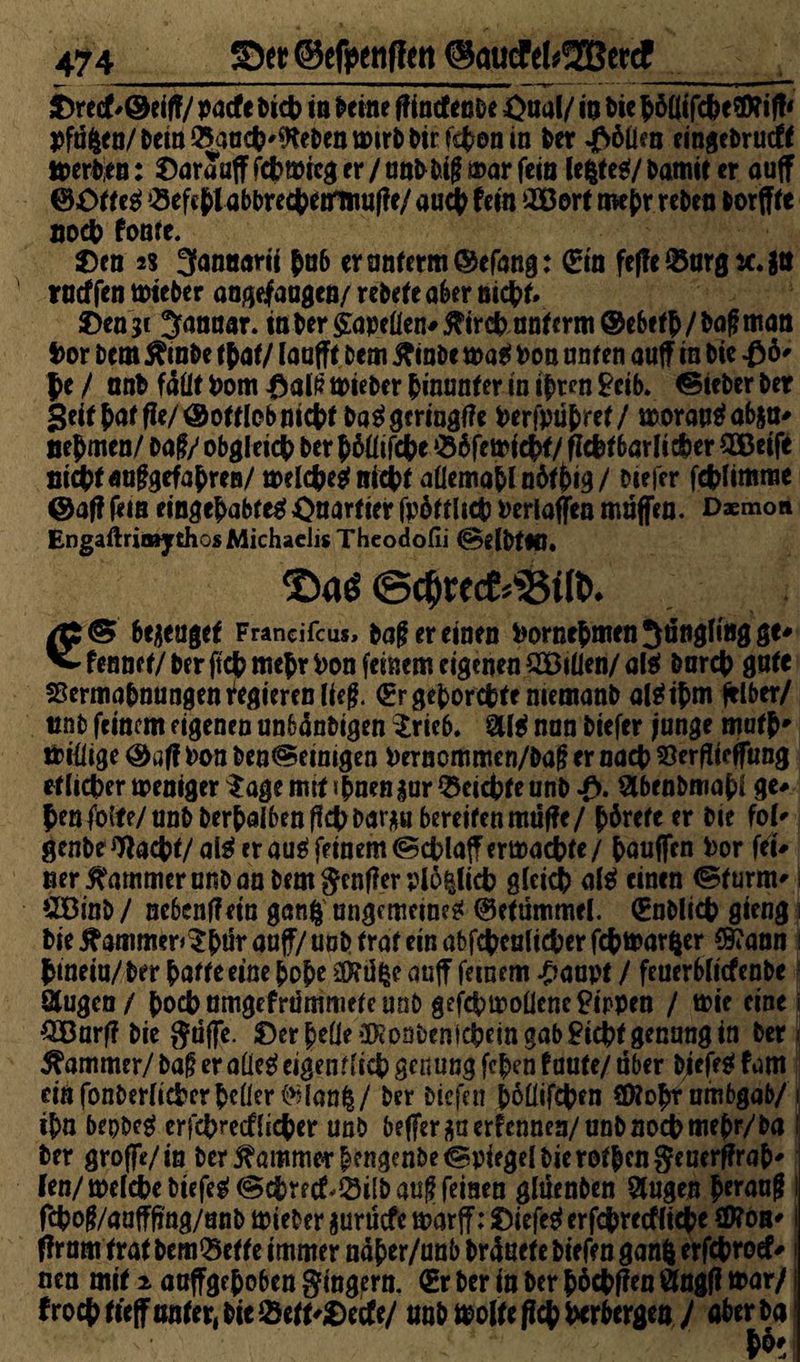 474 Der Gespensten Gauckel-Werck
Dreck-Geist/ packe dich in deine stinckende Qual/ in die höllische Mist-
pfützen/ dein Bauch-Reden wird dir schon in der Höllen eingedruckt
werden: Darauff schwieg er / und diß war sein letztes/ damit er auff
GOttes Befehl abbrechen mußte/ auch kein Wort mehr reden dorffte
noch konte.
Den 28 Januarii hub er unterm Gesang: Ein feste Burg ꝛc. zu
ruffen wieder angefangen/ redete aber nicht.
Den 31 Januar. in der Capellen-Kirch unterm Gebeth / daß man
vor dem Kinde that/ laufft dem Kinde was von unten auff in die Hö-
he / und fällt vom Halß wieder hinunter in ihren Leib. Sieder der
Zeit hat sie/ Gottlob nicht das geringste verspühret / woraus abzu-
nehmen/ daß/ obgleich der höllische Bösewicht/ sichtbarlicher Weise
nicht außgefahren/ welches nicht allemahl nöthig / dieser schlimme
Gast sein eingehabtes Quartier spöttlich verlassen müssen. Dæmon
Engastrimythos Michaelis Theodosii Selbten.
Das Schreck-Bild.
ES bezeuget Franciscus, daß er einen vornehmen Jüngling ge-
kennet/ der sich mehr von seinem eigenen Willen/ als durch gute
Vermahnungen regieren ließ. Er gehorchte niemand als ihm selber/
und seinem eigenen unbändigen Trieb. Als nun dieser junge muth-
willige Gast von den Seinigen vernommen/ daß er nach Verfliessung
etlicher weniger Tage mit ihnen zur Beichte und H. Abendmahl ge-
hen solte/ und derhalben sich darzu bereiten müßte / hörete er die fol-
gende Nacht/ als er aus seinem Schlaff erwachte / haussen vor sei-
ner Kammer und an dem Fenster plötzlich gleich als einen Sturm-
Wind / nebenst ein gantz ungemeines Getümmel. Endlich gieng
die Kammer-Thür auff/ und trat ein abscheulicher schwartzer Mann
hinein/ der hatte eine hohe Mütze auff seinem Haupt / feuerblickende
Augen / hoch umgekrümmete und geschwollene Lippen / wie eine
Wurst die Füsse. Der helle Mondenschein gab Licht genung in der
Kammer/ daß er alles eigentlich genung sehen kunte/ über dieses kam
ein sonderlicher heller Glantz/ der diesen höllischen Mohr umbgab/
ihn beydes erschrecklicher und besser zu erkennen/ und noch mehr/ da
der grosse/ in der Kammer hengende Spiegel die rothen Feuerstrah-
len/ welche dieses Schreck-Bild auß seinen glüenden Augen herauß
schoß/ auffing/ und wieder zurücke warff: Dieses erschreckliche Mon-
strum trat dem Bette immer näher/ und dräuete diesen gantz erschrock-
nen mit 2 auffgehoben Fingern. Er der in der höchsten Angst war/
kroch tieff unter, die Bett-Decke/ und wolte sich verbergen / aber da
hö-